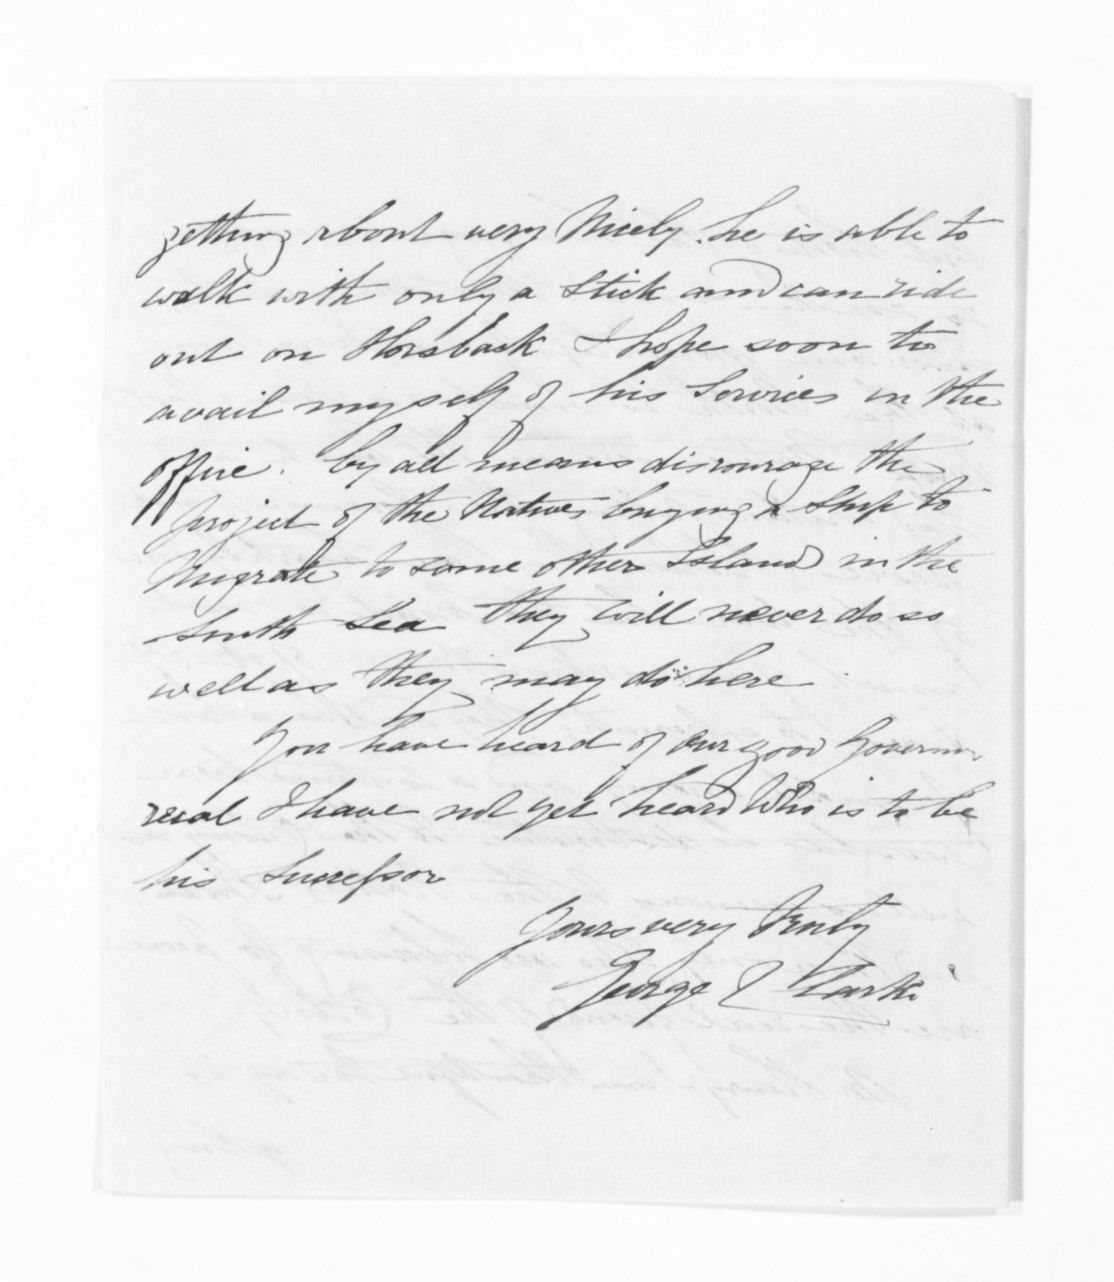 getting about very Nicely. he is able to
walk with only a Stick and can ride
out on Horsback I hope soon to
avail myself of his Services in the
office. by all means discourage the
project of the Natives buying a Ship to
Migrate to some other Island in the
South Sea they will never do so
well as they may do here
You have heard of our good Governors
recal I have not yet heard Who is to be
his Successor
Yours very Truly
George Clarke